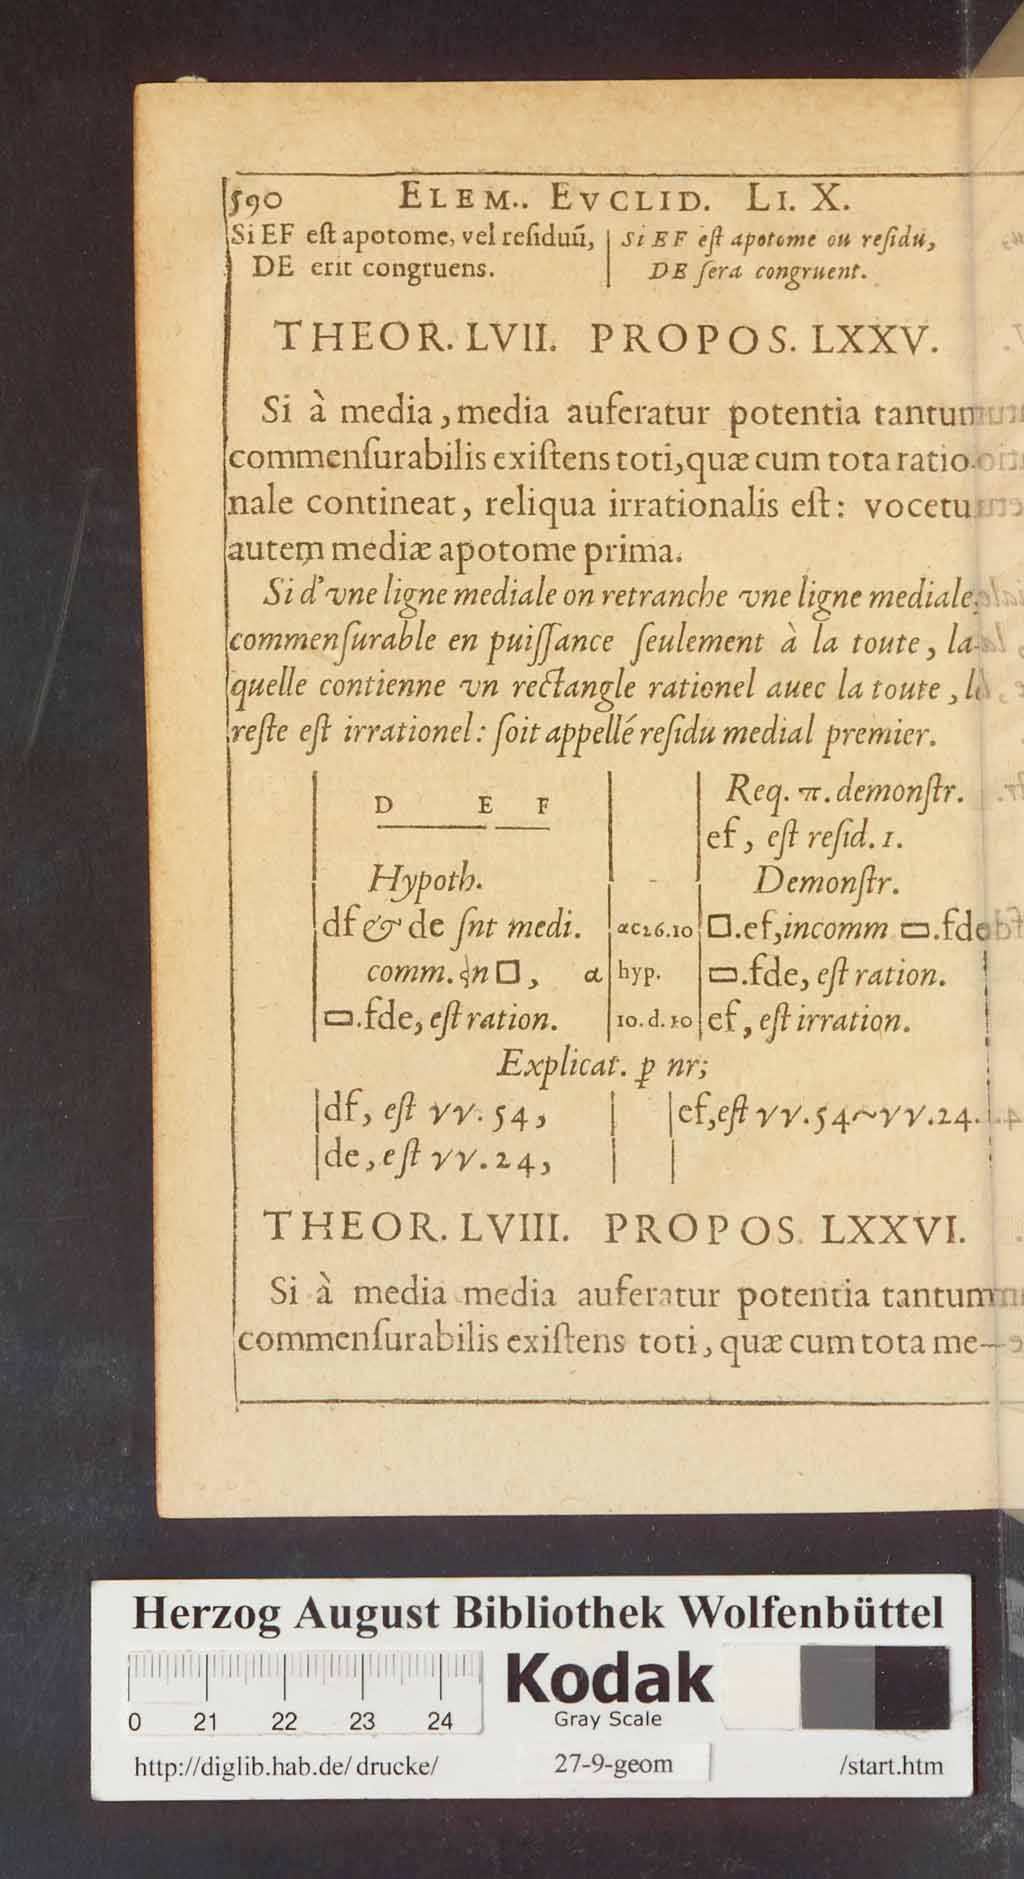 590 ELEM.. EVCLID. LI. X.
Si EF eſt apotome, vel reſiduū, | Si EF eſt apotome ou reſidu,
DE erit congruens. | DE ſera congruent.
THEOR. LVII. PROPOS. LXXV.
Si à media, media auferatur potentia tantum
commenſurabilis exiſtens toti, quæ cum tota ratio-
nale contineat, reliqua irrationalis eſt: vocetur
autem mediæ apotome prima.
Si d'vne ligne mediale on retranche vne ligne mediale,
commenſurable en puiſſance ſeulement à la toute, la-
quelle contienne vn rectangle rationel auec la toute, le
reſte eſt irrationel: ſoit appellé reſidu medial premier.
D E F
Hypoth.
df & de ſnt medi.
comm. ɋn □, α
▭.fde, eſt ration.
αc26.10
hyp.
10.d.10
Req. π. demonſtr.
ef, eſt reſid. 1.
Demonſtr.
□.ef, incomm ▭.fde
▭.fde, eſt ration.
ef, eſt irration.
Explicat. ꝑ nr;
df, eſt √√. 54,
de, eſt √√. 24,
ef, eſt √√.54~√√.24.
THEOR. LVIII. PROPOS. LXXVI.
Si à media media auferatur potentia tantum
commenſurabilis exiſtens toti, quæ cum tota me-
Herzog August Bibliothek Wolfenbüttel
0 21 22 23 24
Kodak
Gray Scale
http://diglib.hab.de/drucke/ 27-9-geom /start.htm